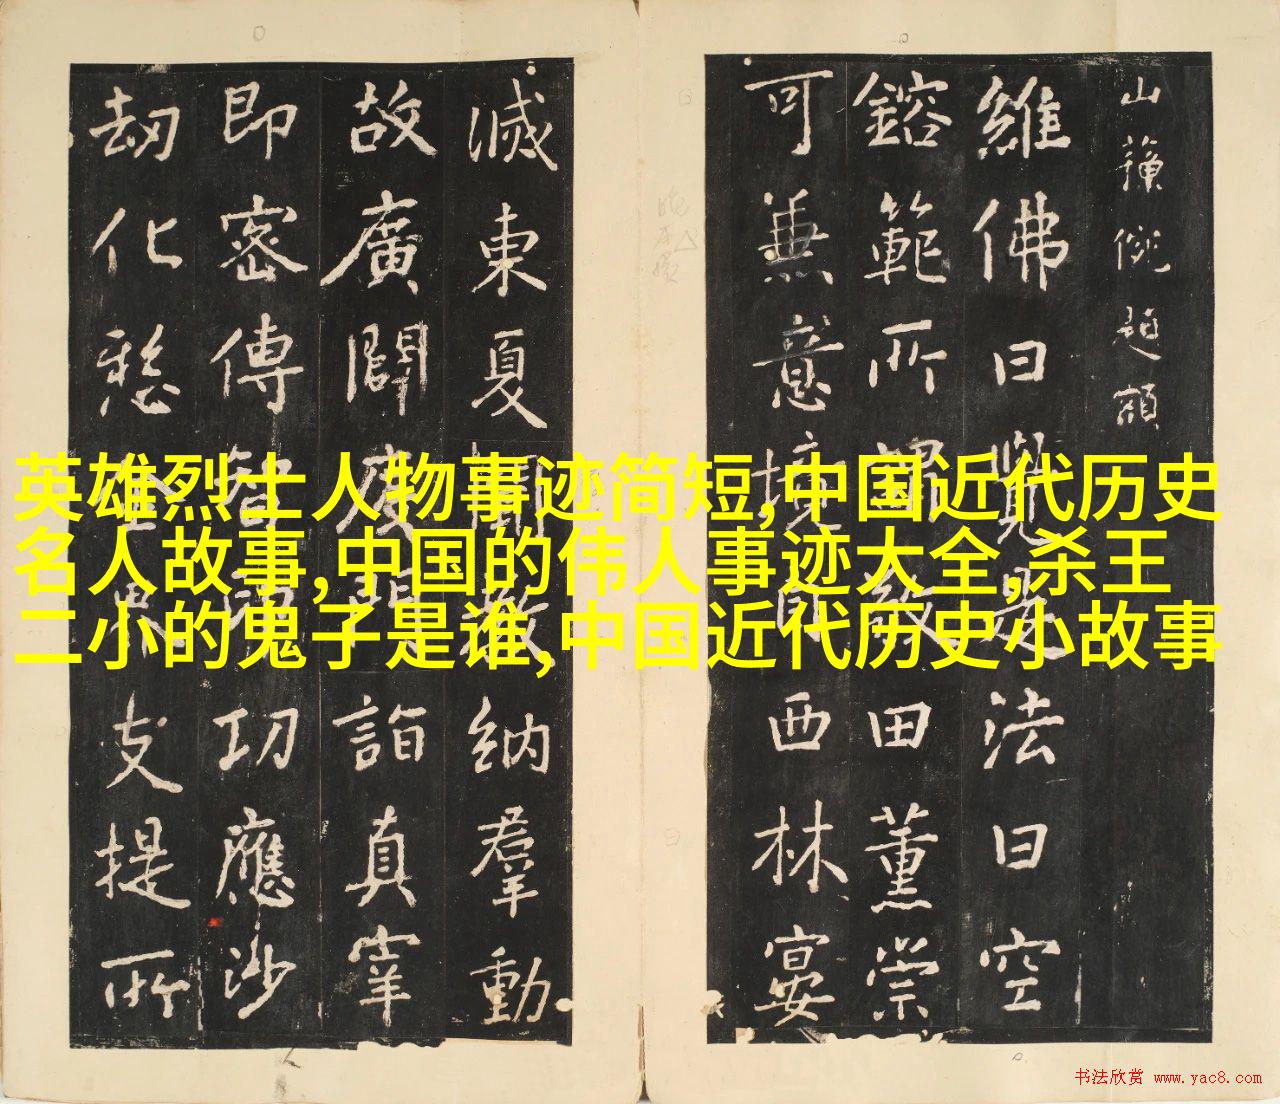 英雄烈士人物事迹简短,中国近代历史
名人故事,中国的伟人事迹大全,杀王
二小的鬼子是谁,中国近代历史小故事
維佛曰覺是法曰空
鎔範所謂敬田薰崇
可兼意境自西林宴
滅東夏開納羣動
故廣闢度門詣真宰
即密傳智功應沙
劫化愁界支提所
书法欣赏 www.yac8.com